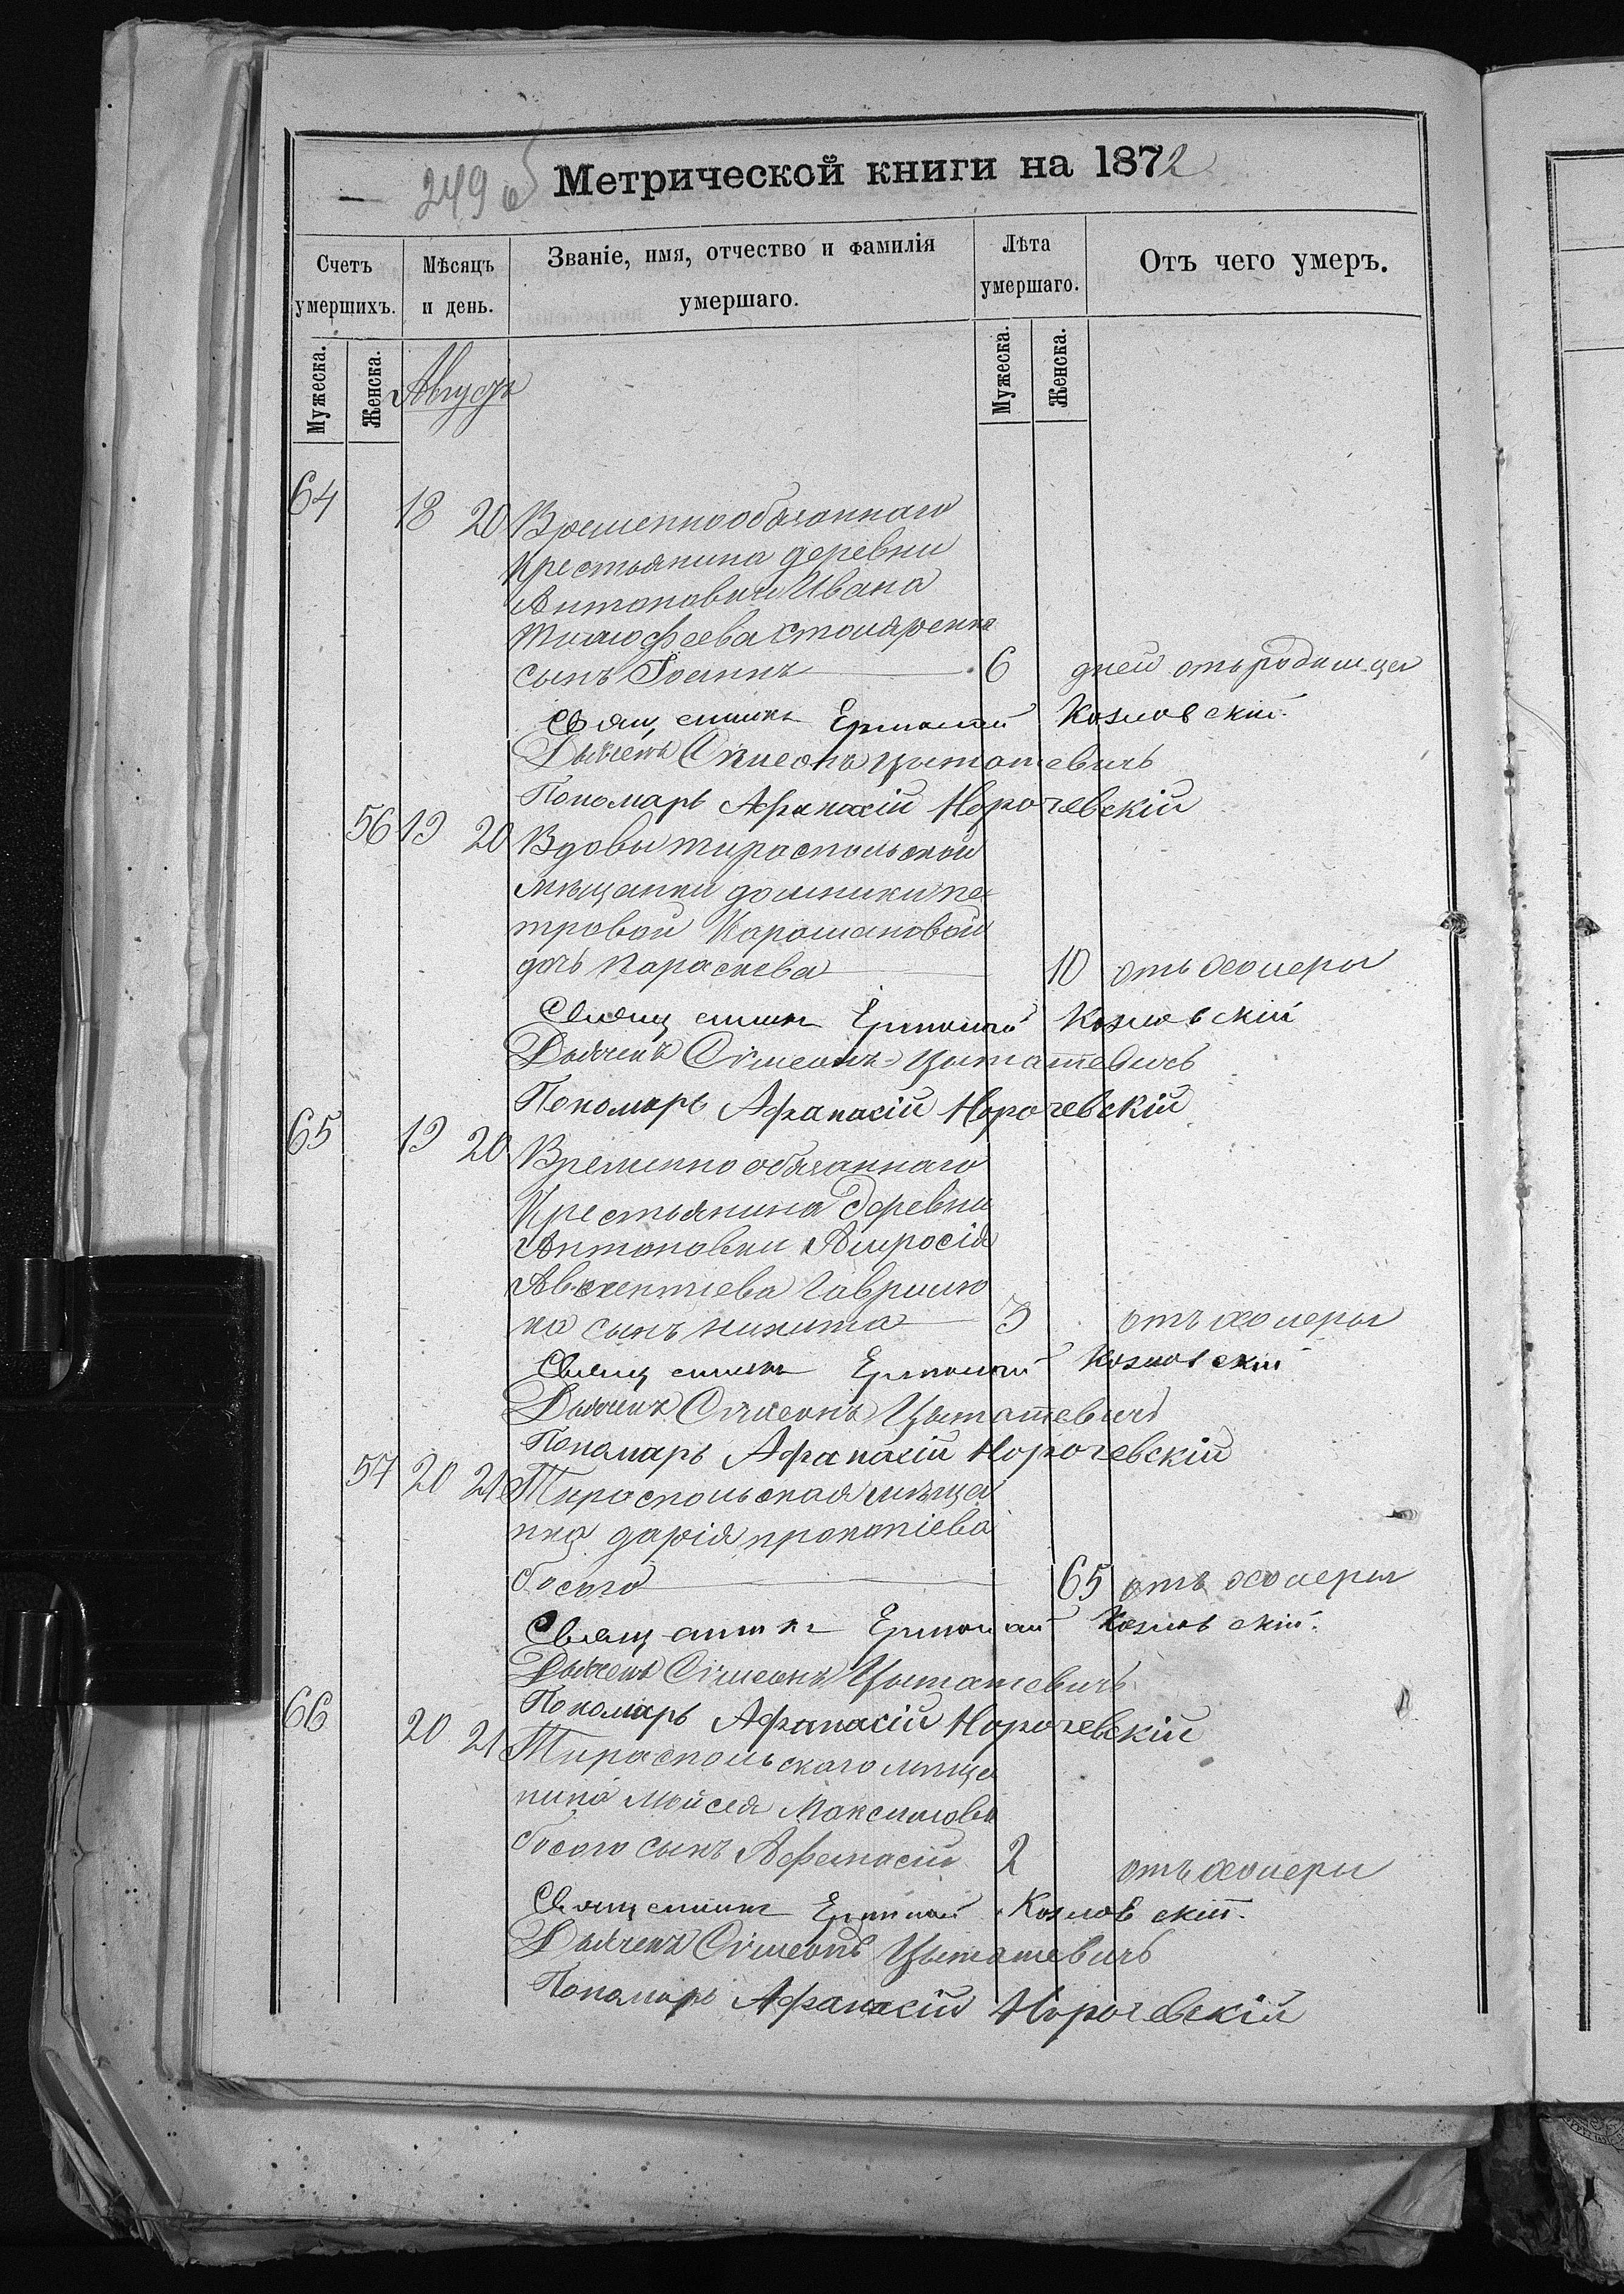 249 об
Метрической книги на 1872
Счетъ умершихъ.
Мѣсяцъ и день.
Званіе, имя, отчество и фамилія умершаго.
Лѣта умершаго.
Отъ чего умеръ.
Мужеска.
Женска.
Августъ
Мужеска.
Женска.
64 18 20 Временнообязаннаго
крестьянина деревни
Антоновки Ивана
Тимофеева Столяренка
сынъ Іоаннъ 6 дней отъ родимца
Священникъ Ермолай Козловскій.
Дьячекъ Сімеонъ Цыташевичъ
Пономарь Афанасій Норочевскій
56 19 20 Вдовы тираспольской
мѣщанки домники пе
тровой Карамановой
дочь Параскева 10 отъ холеры
Священникъ Ермолай Козловскій
Дьячекъ Сімеонъ Цыташевичъ
Пономарь Афанасій Норочевскій
65 19 20 Временно обязаннаго
Крестьянина деревни
Антоновки Амросія
Авксентіева Гаврилю
ка сынъ никита 3 отъ холеры
Священникъ Ермолай Козловскій
Дьячекъ Сімеонъ Цыташевичъ
Пономарь Афанасій Норочевскій
57 20 21 Тираспольская мѣща
нка дарія прокопіева
босого 65 отъ холеры
Священникъ Ермолай Козловскій.
Дьячекъ Сімеонъ Цыташевичъ
Пономарь Афанасій Норочевскій
66 20 21 Тираспольскаго мѣща
нина Мойсея Максимова
босого сынъ Афанасій 2 отъ холеры
Священникъ Ермолай Козловскій.
Дьячекъ Сімеонъ Цыташевичъ
Пономарь Афанасій Норочевскій